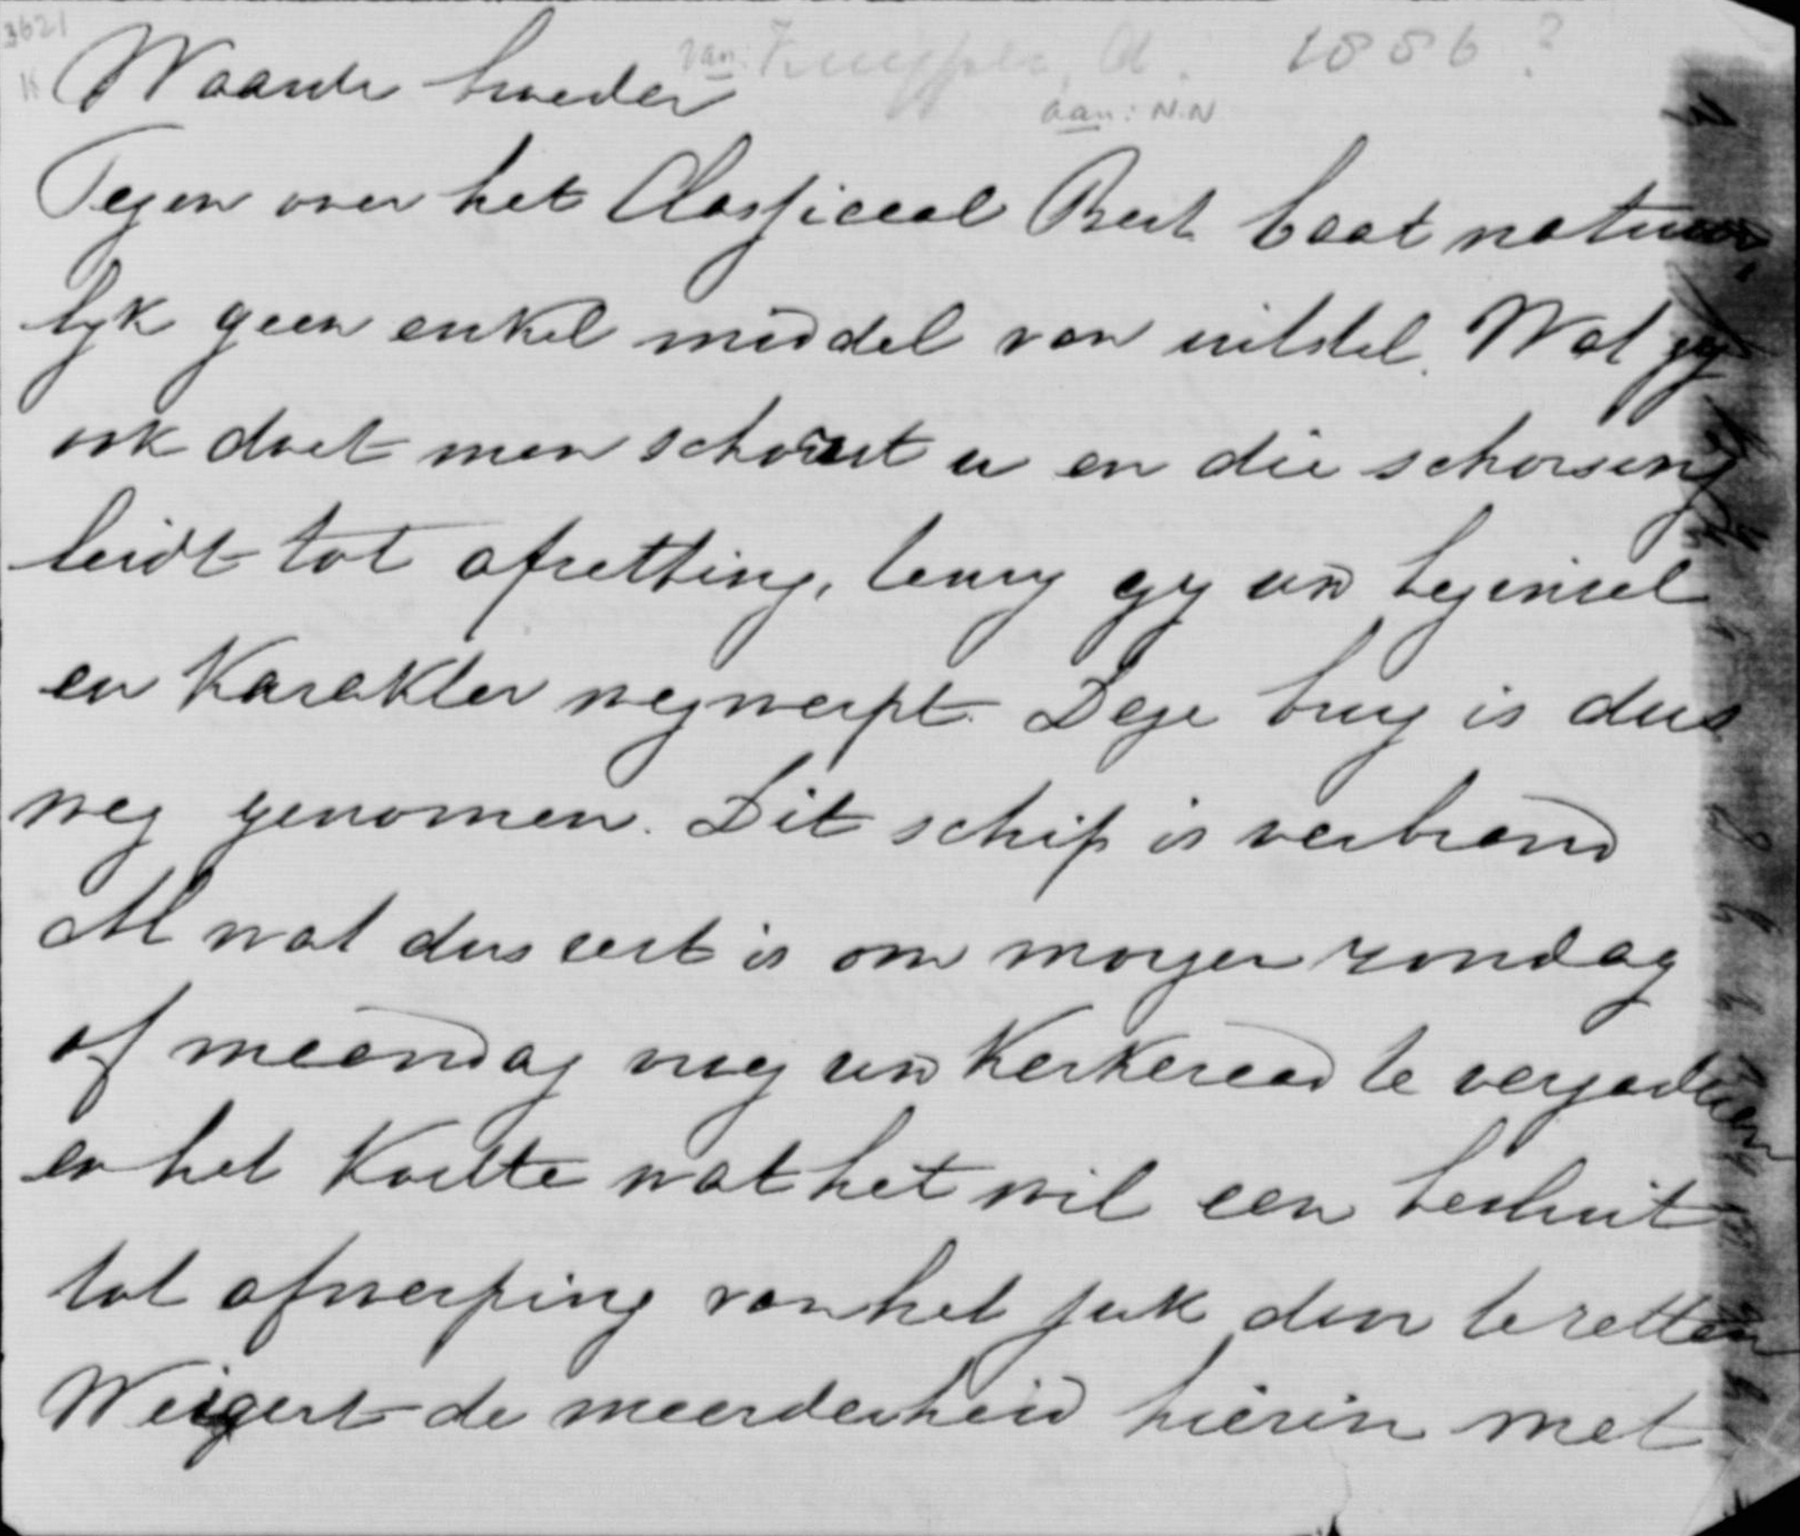 3621
K
van: Kuyper, A. 1886?
aan: N.N
Waarde broeder
Tegen over het Classicaal Best. baat natuur
lyk geen enkel middel van uitstel. Wat gy
ook doet men schorst u en die schorsing
leidt tot afzetting, tenzy gy uw beginsel
en karakter wegwerpt. Deze brug is dus
weg genomen. Dit schip is verbrand
Al wat dus rest is om morgen zondag
of maandag nog uw Kerkeraad te vergaderen
en het Koste wat het wil een besluit
tot afwerping van het juk door te zetten
Weigert de meerderheid hierin met